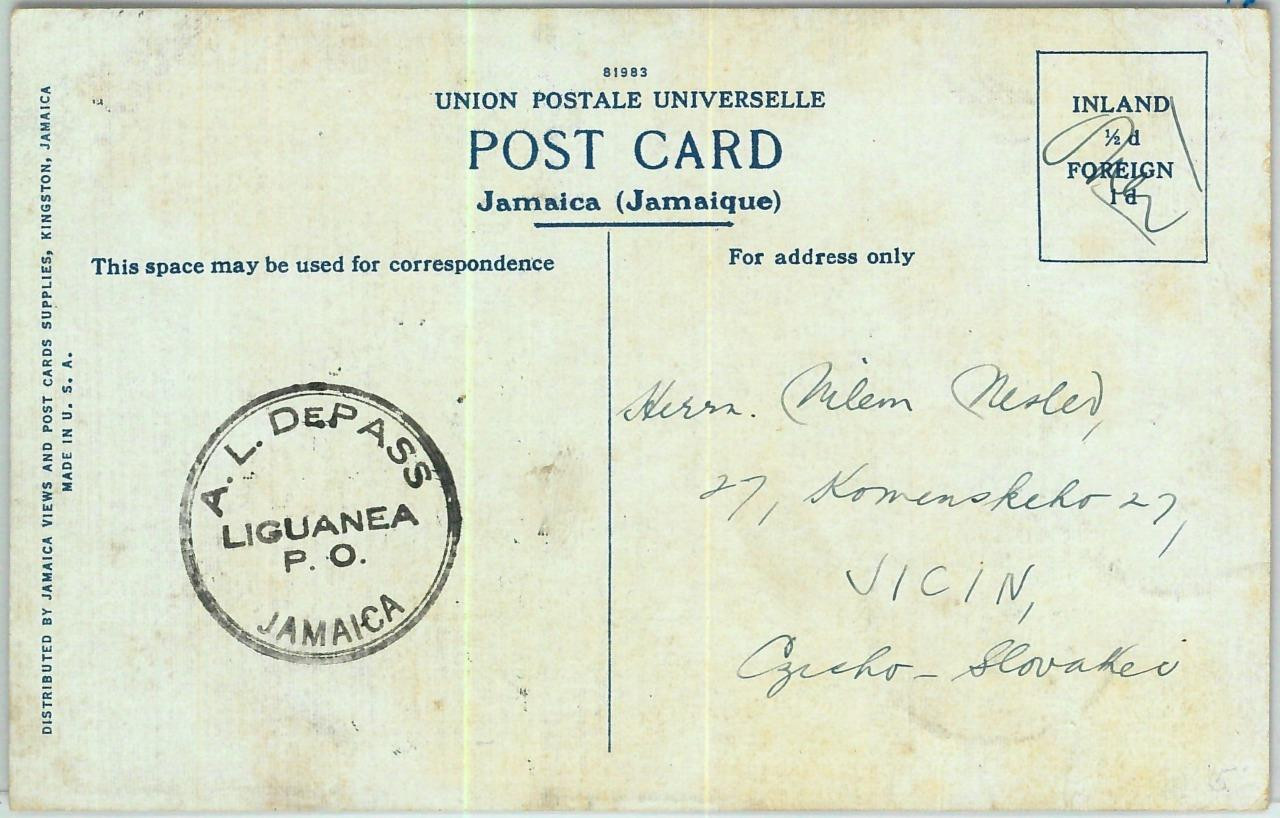 81983
UNION POSTALE UNIVERSELLE
POST CARD
Jamaica (Jamaique)
INLAND
½ d
FOREIGN
1 d
This space may be used for correspondence
For address only
DISTRIBUTED BY JAMAICA VIEWS AND POST CARDS SUPPLIES, KINGSTON, JAMAICA
MADE IN U. S. A.
A. L. DEPASS
LIGUANEA
P. O.
JAMAICA
Herrn. Vilem Nesled,
27, Komenskeho 27,
JICIN,
Czecho-Slovakei